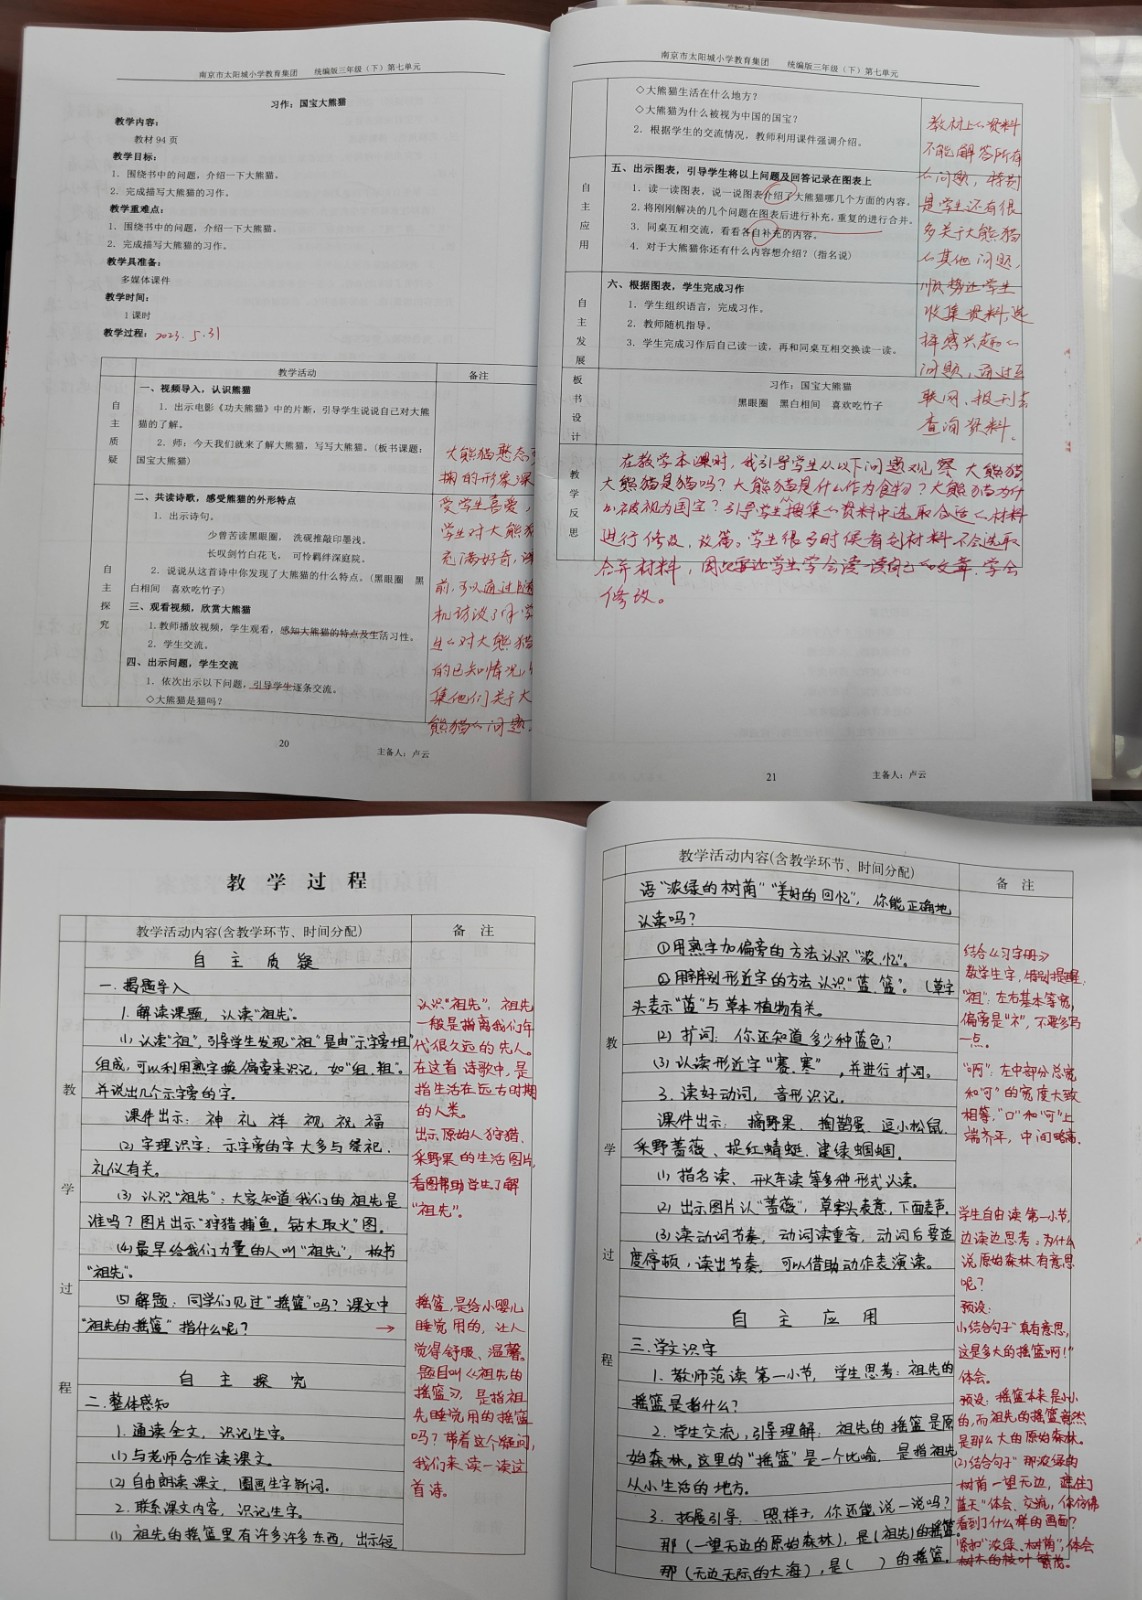 南京市太阳城小学教育集团 统编版三年级（下）第七单元
习作：国宝大熊猫
教学内容：
教材 94 页
教学目标：
1. 围绕书中的问题，介绍一下大熊猫。
2. 完成描写大熊猫的习作。
教学重难点：
1. 围绕书中的问题，介绍一下大熊猫。
2. 完成描写大熊猫的习作。
教学具准备：
多媒体课件
教学时间：
1 课时
教学过程：2023. 5. 31
教学活动
备注
自主质疑
一、视频导入，认识熊猫
1. 出示电影《功夫熊猫》中的片断，引导学生说说自己对大熊
猫的了解。
2. 师：今天我们就来了解大熊猫，写写大熊猫。（板书课题：
国宝大熊猫）
自主探究
二、共读诗歌，感受熊猫的外形特点
1. 出示诗句。
少曾苦读黑眼圈， 洗砚推敲印墨浅。
长叹剑竹白花飞， 可怜羁绊深庭院。
2. 说说从这首诗中你发现了大熊猫的什么特点。（黑眼圈 黑
白相间 喜欢吃竹子）
三、观看视频，欣赏大熊猫
1. 教师播放视频，学生观看，感知大熊猫的特点及生活习性。
2. 学生交流。
四、出示问题，学生交流
1. 依次出示以下问题，引导学生逐条交流。
◇大熊猫是猫吗？
大熊猫憨态
掬的形象深
受学生喜爱，
学生对大熊猫
充满好奇，课
前，可以通过
机访谈了解学
生对大熊猫
的已知情况，
集他们关于大
熊猫的问题。
20
主备人：卢云
南京市太阳城小学教育集团 统编版三年级（下）第七单元
◇大熊猫生活在什么地方？
◇大熊猫为什么被视为中国的国宝？
2. 根据学生的交流情况，教师利用课件强调介绍。
自主应用
五、出示图表，引导学生将以上问题及回答记录在图表上
1. 读一读图表，说一说图表介绍了大熊猫哪几个方面的内容。
2. 将刚刚解决的几个问题在图表后进行补充，重复的进行合并。
3. 同桌互相交流，看看各自补充的内容。
4. 对于大熊猫你还有什么内容想介绍？（指名说）
自主发展
六、根据图表，学生完成习作
1. 学生组织语言，完成习作。
2. 教师随机指导。
3. 学生完成习作后自己读一读，再和同桌互相交换读一读。
板书设计
习作：国宝大熊猫
黑眼圈 黑白相间 喜欢吃竹子
教材上的资料
不能解答所有
的问题，特别
是学生还有很
多关于大熊猫
的其他问题，
顺势让学生
收集资料，选
择感兴趣的
问题，通过互
联网、报刊去
查询资料。
教学反思
在教学本课时，我引导学生从以下问题观察大熊猫
大熊猫是猫吗？大熊猫是什么作为食物？大熊猫为什
么被视为国宝？引导学生搜集的资料中选取合适的材料
进行修改，改篇。学生很多时候看到材料不会选取
合并材料，因此要让学生学会读一读自己的文章，学会
修改。
21
主备人：卢云
教 学 过 程
教学活动内容(含教学环节、时间分配)
备 注
教学过程
自 主 质 疑
一. 揭题导入
1. 解读课题，认读“祖先”。
(1) 认读“祖”，引导学生发现“祖”是由“示字旁+且”
组成，可以利用熟字换偏旁来识记，如“组、粗”。
并说出几个示字旁的字。
课件出示：神 礼 祥 祝 祝 福
(2) 字理识字：示字旁的字大多与祭祀、
礼仪有关。
(3) 认识“祖先”：大家知道我们的祖先是
谁吗？图片出示“狩猎捕鱼，钻木取火”图。
(4) 最早给我们力量的人叫“祖先”，板书
“祖先”。
(5) 解题：同学们见过“摇篮”吗？课文中
“祖先的摇篮”指什么呢？ →
自 主 探 究
二. 整体感知
1. 通读全文，识记生字。
(1) 与老师合作读课文。
(2) 自由朗读课文，圈画生字新词。
2. 联系课文内容，识记生字。
(1) 祖先的摇篮里有许多许多东西，出示短
认识“祖先”，祖先
一般是指离我们年
代很久远的先人。
在这首诗歌中，是
指生活在远古时期
的人类。
出示原始人狩猎、
采野果的生活图片，
看图帮助学生了解
“祖先”。
摇篮，是给小婴儿
睡觉用的，让人
觉得舒服、温馨。
题目叫《祖先的
摇篮》，是指祖
先睡觉用的摇篮
吗？带着这个疑问，
我们来读一读这
首诗。
教学活动内容(含教学环节、时间分配)
备 注
教学过程
语“浓绿的树荫”“美好的回忆”，你能正确地
认读吗？
①用熟字加偏旁的方法认识“浓、忆”。
②用辨别形近字的方法认识“蓝、篮”。（草字
头表示“蓝”与草本植物有关。
(2) 扩词：你还知道多少种蓝色？
(3) 认读形近字“赛、寒”，并进行扩词。
3. 读好动词，音形识记。
课件出示：摘野果、掏鹊蛋、逗小松鼠、
采野蔷薇、捉红蜻蜓、逮绿蝈蝈。
(1) 指名读、开火车读等多种形式认读。
(2) 出示图片认“蔷薇”，草字头表意，下面表声。
(3) 读动词节奏，动词读重音，动词后要适
度停顿，读出节奏，可以借助动作表演读。
自 主 应 用
三. 学文识字
1. 教师范读第一小节，学生思考：祖先的
摇篮是指什么？
2. 学生交流，引导理解：祖先的摇篮是原
始森林。这里的“摇篮”是一个比喻，是指祖先
从小生活的地方。
3. 拓展引导：照样子，你还能说一说吗？
那（一望无边的原始森林），是（祖先）的摇篮。
那（无边无际的大海），是（ ）的摇篮。
结合《习字册》
教学生字，特别提醒：
“祖”：左右基本等宽，
偏旁是“礻”，不要多写
一点。
“啊”：左中部分总宽
和“可”的宽度大致
相等，“口”和“可”上
端齐平，中间略高。
学生自由读第一小节，
边读边思考：为什么
说原始森林有意思
呢？
预设：
(1)结合句子“真有意思，
这是多大的摇篮啊！”
体会。
预设：摇篮本来是小小
的，而祖先的摇篮竟然
是那么大的原始森林。
(2)结合句子“那浓绿的
树荫一望无边，遮住了
蓝天”体会、交流，你仿佛
看到了什么样的画面？
紧扣“浓绿、树荫”，体会
树木的枝叶繁茂。